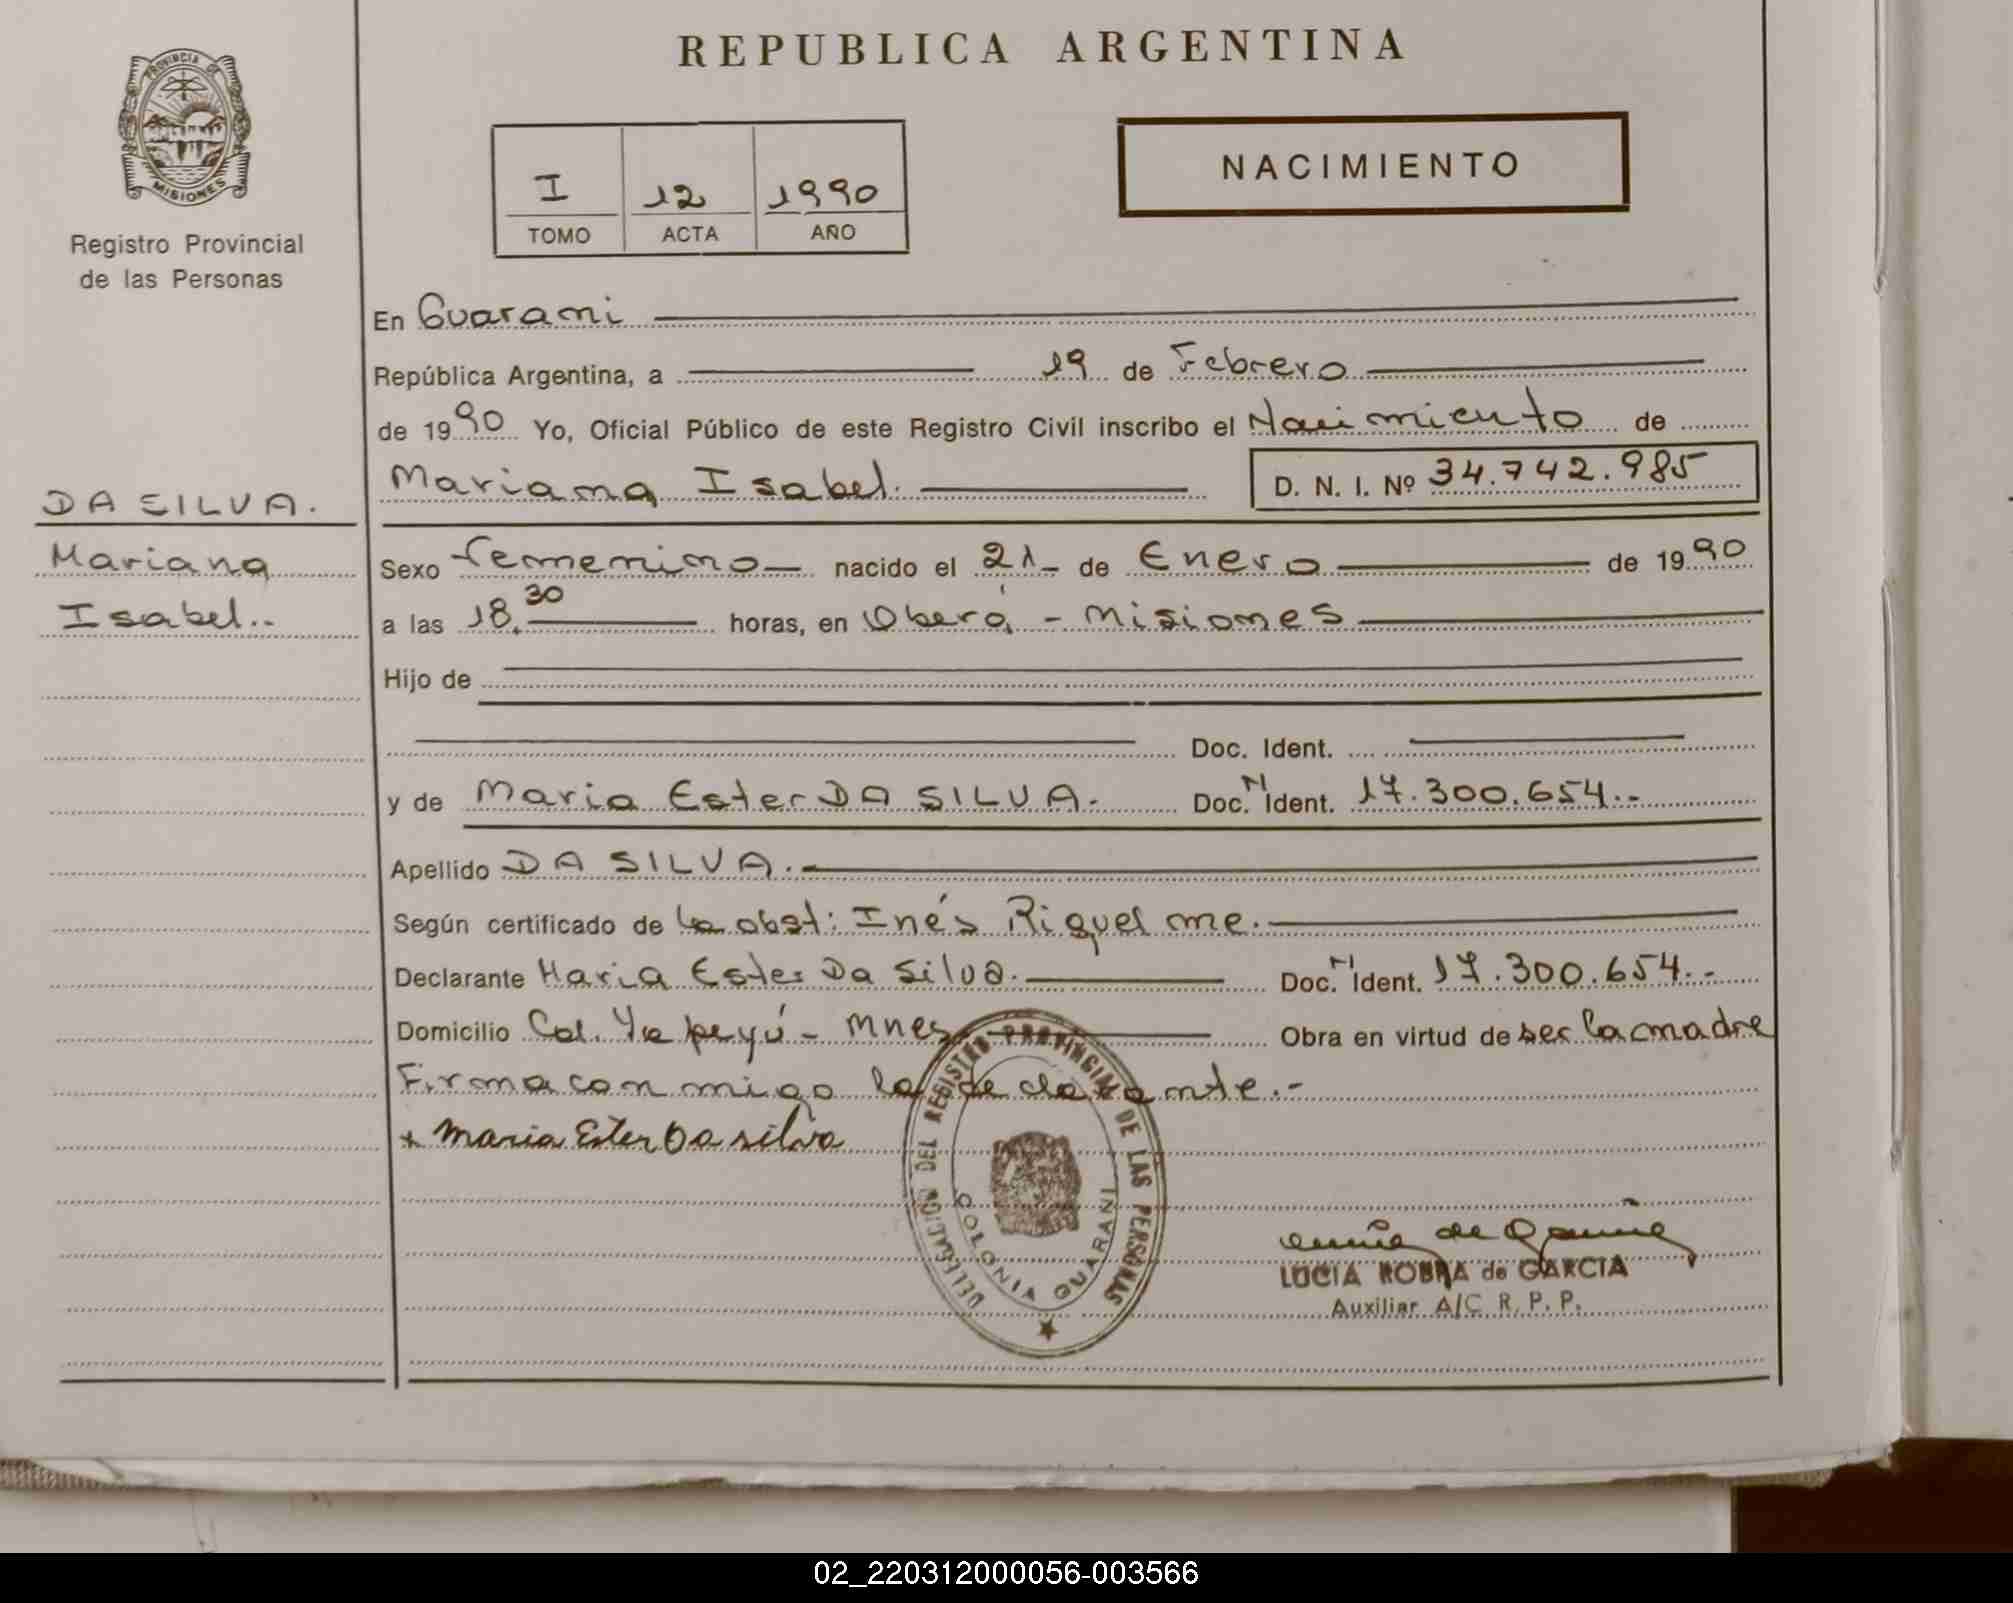 REPUBLICA ARGENTINA
PROVINCIA DE
MISIONES
Registro Provincial
de las Personas
NACIMIENTO
I 12 1990
TOMO ACTA AÑO
En Guarani
República Argentina, a 19 de Febrero
de 1990 Yo, Oficial Público de este Registro Civil inscribo el Nacimiento de
Mariana Isabel. D. N. I. Nº 34.742.985
DA SILVA.
Mariana
Isabel.-
Sexo femenino nacido el 21 de Enero de 1990
a las 18.30 horas, en Oberá - Misiones
Hijo de
Doc. Ident.
y de Maria Ester DA SILVA.- Doc. Ident. 17.300.654.-
Apellido DA SILVA.-
Según certificado de la obst: Inés Riquelme.
Declarante Maria Ester Da Silva. Doc. Ident. 17.300.654.-
Domicilio Col. Yapeyú - Mnes Obra en virtud de ser la madre
Firma con migo la declarante.-
+ Maria Ester Da silva
DELEGACION DEL REGISTRO PROVINCIAL DE LAS PERSONAS
COLONIA GUARANI
LUCIA ROBRA de GARCIA
Auxiliar A/C R. P. P.
02_220312000056-003566